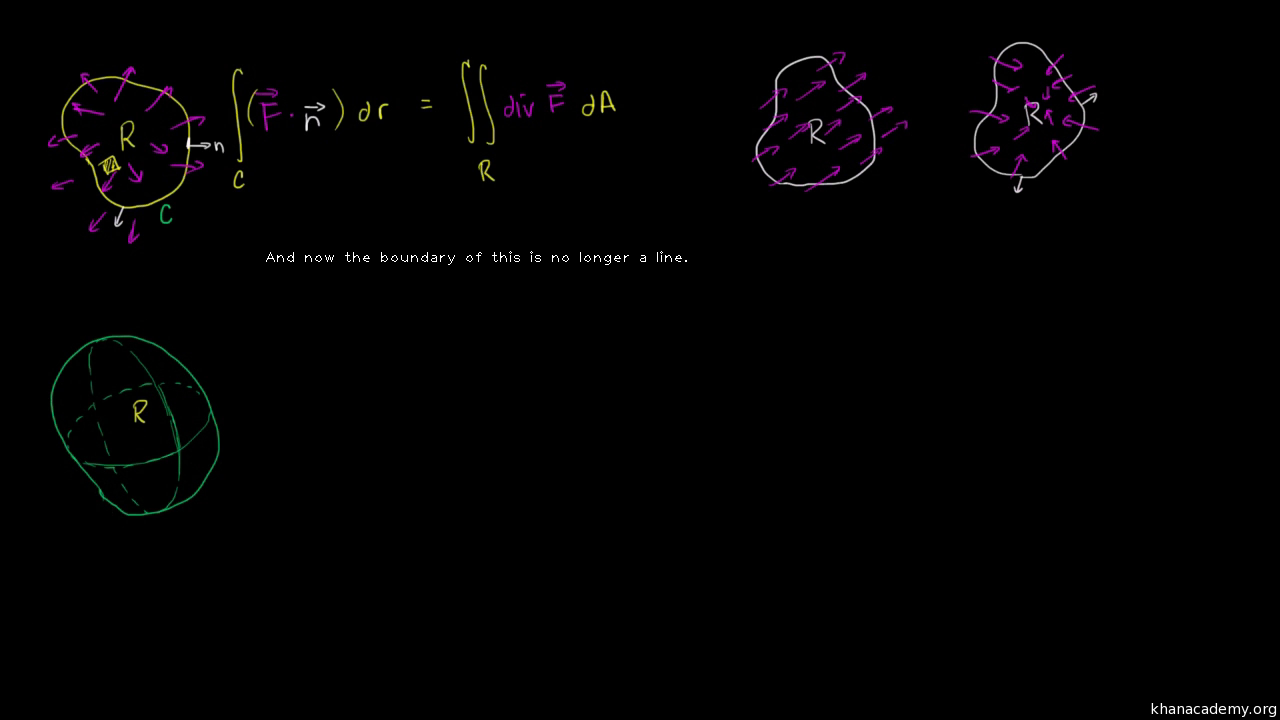 R
n
C
∫ (F⃗ · n⃗) dr = ∬ div F⃗ dA
C R
R
R
And now the boundary of this is no longer a line.
R
khanacademy.org